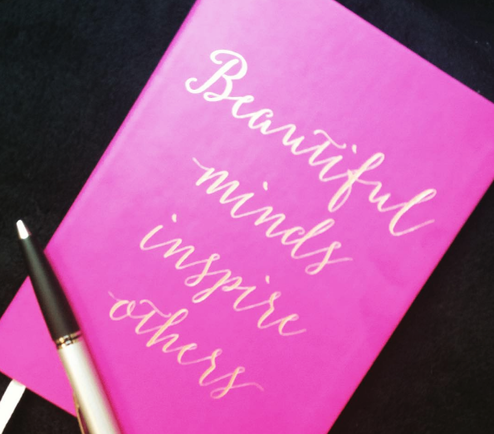 Beautiful
minds
inspire
others